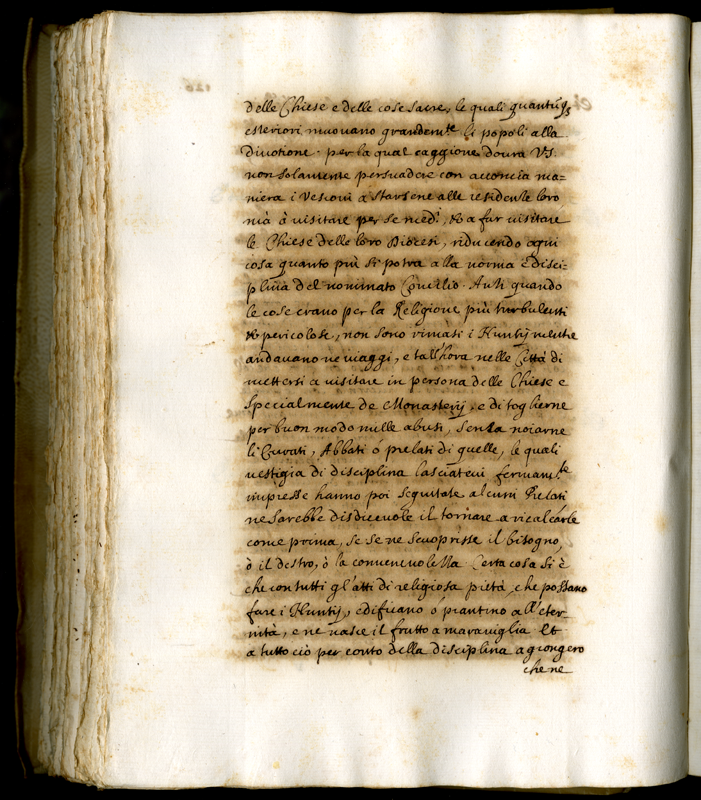 delle Chiese e delle cose sacre, le quali quantũq3
esteriori muouano grandem.te li popoli alla
diuotione. per la qual caggione doura VS.
non solamente persuadere con acconcia ma=
niera i Vescoui a starsene alle residente loro
mà à visitare per se med.i, et a far visitare
le Chiese delle loro Diocesi, riducendo ogni
cosa quanto più si potra alla norma e disci=
plina del nominato Concilio. Anti quando
le cose erano per la Religione più turbulenti
et pericolose, non sono rimasti i Nuntij mentre
andauano ne uiaggi, e tall'hora nelle Città di
mettersi a visitare in persona delle Chiese e
specialmente de Monasterij, e di toglierne
per buon modo mille abusi, senza noiarne
li Curati, Abbati ó prelati di quelle, le quali
uestigia di disciplina lasciateui fermam.te
impresse hanno poi seguitate alcuni Prelati
ne sarebbe disdiceuole il tornare a ricalcarle
come prima, se se ne scuoprisse il bisogno,
ò il destro, ò la conueneuolezza. Certa cosa si è
che con tutti gl'atti di religiosa pietà, che possano
fare i Nuntij, edificano ó piantino all'eter=
nità, e ne nasce il frutto a marauiglia Et
a tutto ciò per conto della disciplina agiongero
che ne